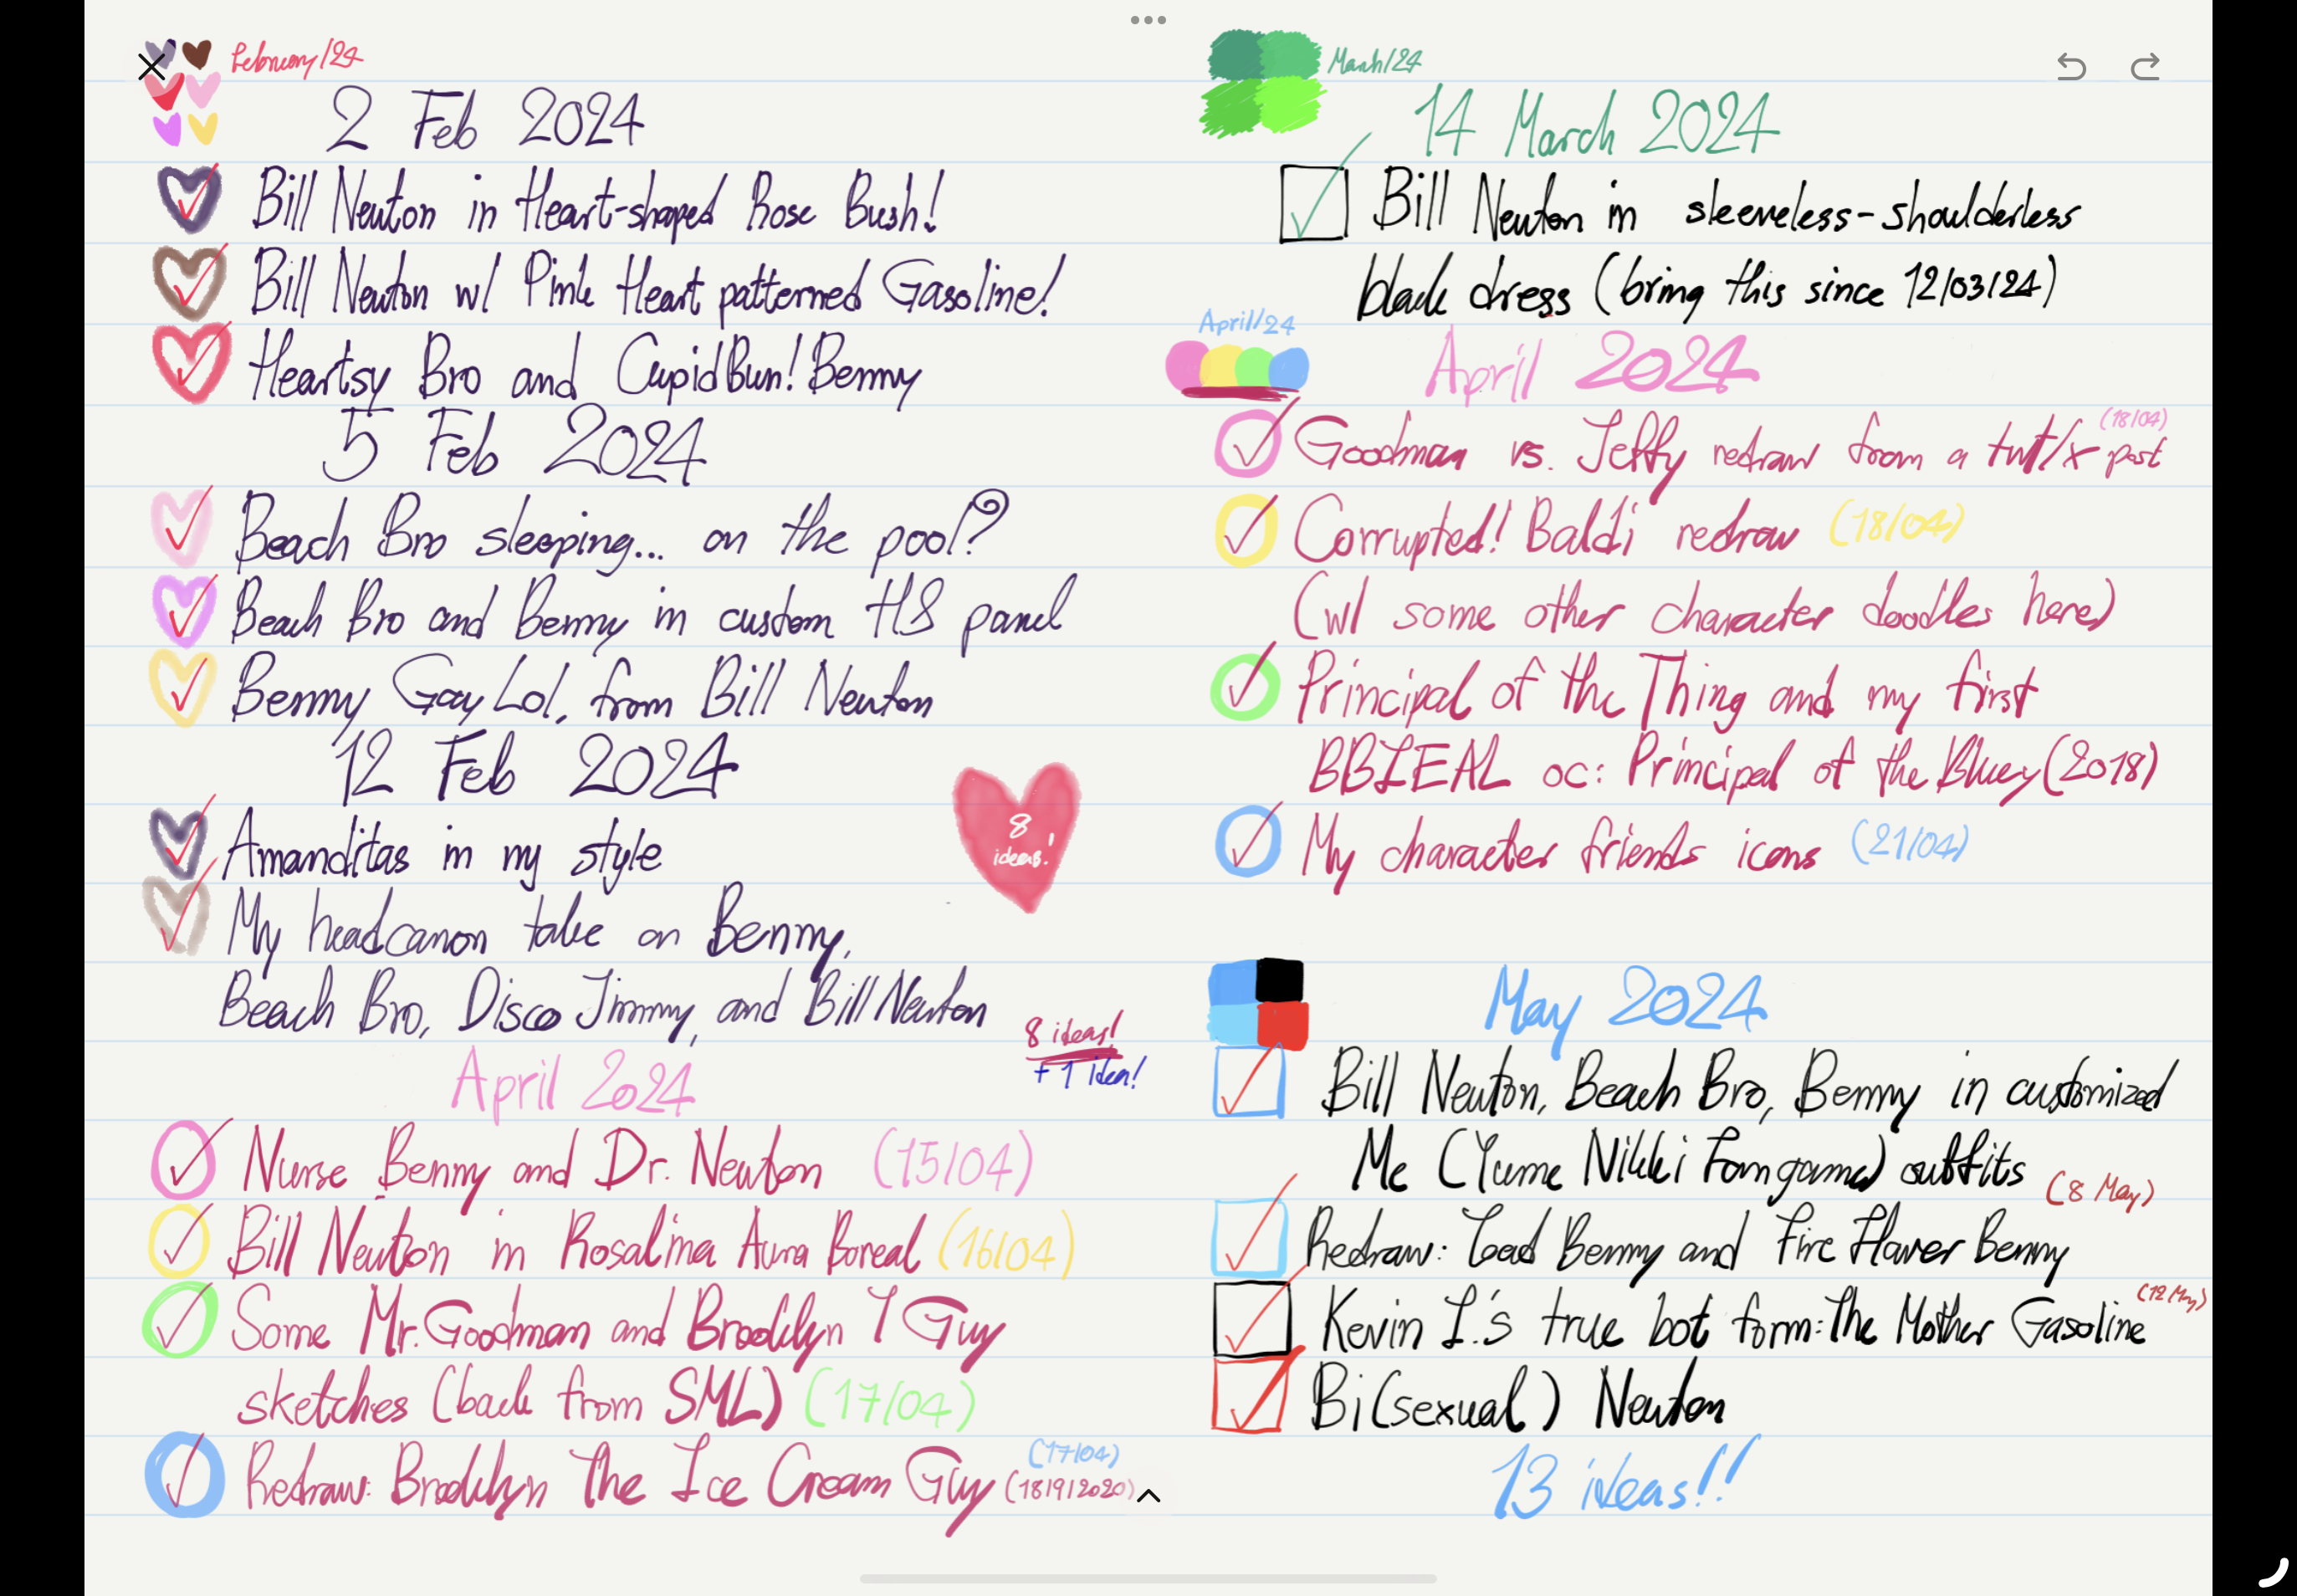 February/24
2 Feb 2024
Bill Newton in Heart-shaped Rose Bush!
Bill Newton w/ Pink Heart patterned Gasoline!
Heartsy Bro and CupidBun! Benny
5 Feb 2024
Beach Bro sleeping... on the pool?
Beach Bro and Benny in custom HS panel
Benny Gay Lol, from Bill Newton
12 Feb 2024
Amanditas in my style
8 ideas!
My headcanon take on Benny,
Beach Bro, Disco Jimmy, and Bill Newton
8 ideas!
+ 1 idea!
April 2024
Nurse Benny and Dr. Newton (15/04)
Bill Newton in Rosalina Aura Boreal (16/04)
Some Mr. Goodman and Brooklyn T Guy
sketches (back from SML) (17/04)
Redraw: Brooklyn The Ice Cream Guy (17/04) (18/9/2020)
March/24
14 March 2024
Bill Newton in sleeveless-shoulderless
black dress (bring this since 12/03/24)
April/24
April 2024
Goodman vs. Jeffy redraw from a twt/x post (18/04)
Corrupted! Baldi redraw (18/04)
(w/ some other character doodles here)
Principal of the Thing and my first
BBIEAL oc: Principal of the Bluey (2018)
My character friends icons (21/04)
May 2024
Bill Newton, Beach Bro, Benny in customized
Me (Yume Nikki Fangame) outfits (8 May)
Redraw: Toad Benny and Fire Flower Benny
Kevin I.'s true bot form: The Mother Gasoline (12 May)
Bi(sexual) Newton
13 ideas!!